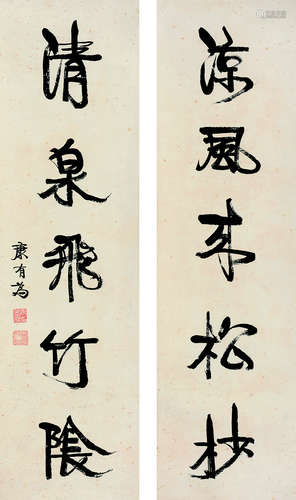 涼風來松杪
清泉飛竹陰
康有為